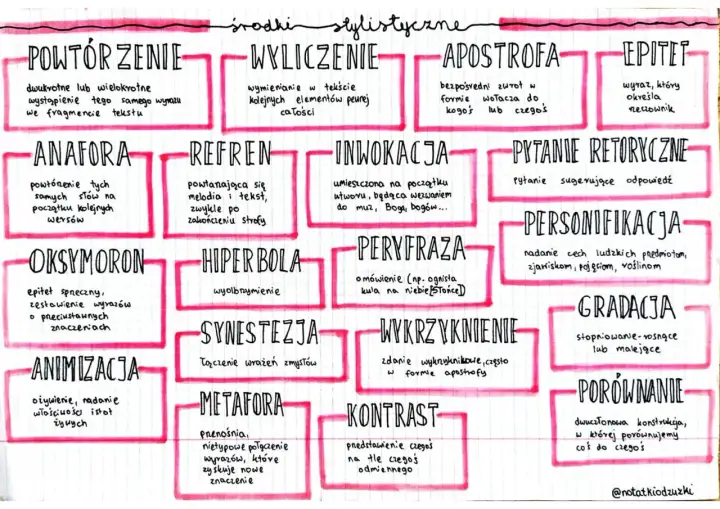 środki stylistyczne
POWTÓRZENIE
dwukrotne lub wielokrotne
wystąpienie tego samego wyrazu
we fragmencie tekstu
WYLICZENIE
wymienianie w tekście
kolejnych elementów pewnej
całości
APOSTROFA
bezpośredni zwrot w
formie wołacza do
kogoś lub czegoś
EPITET
wyraz, który
określa
rzeczownik
ANAFORA
powtórzenie tych
samych słów na
początku kolejnych
wersów
REFREN
powtarzająca się
melodia i tekst,
zwykle po
zakończeniu strofy
INWOKACJA
umieszczona na początku
utworu, będąca wezwaniem
do muz, Boga, bogów...
PYTANIE RETORYCZNE
pytanie sugerujące odpowiedź
OKSYMORON
epitet sprzeczny,
zestawienie wyrazów
o przeciwstawnych
znaczeniach
HIPERBOLA
wyolbrzymienie
PERYFRAZA
omówienie (np. ognista
kula na niebie [Słońce])
PERSONIFIKACJA
nadanie cech ludzkich przedmiotom,
zjawiskom, pojęciom, roślinom
SYNESTEZJA
łączenie wrażeń zmysłów
WYKRZYKNIENIE
zdanie wykrzyknikowe, często
w formie apostrofy
GRADACJA
stopniowanie-rosnące
lub malejące
ANIMIZACJA
ożywienie, nadanie
właściwości istot
żywych
METAFORA
przenośnia,
nietypowe połączenie
wyrazów, które
zyskuje nowe
znaczenie
KONTRAST
przedstawienie czegoś
na tle czegoś
odmiennego
PORÓWNANIE
dwuczłonowa konstrukcja,
w której porównujemy
coś do czegoś
@notatkiodzuzki